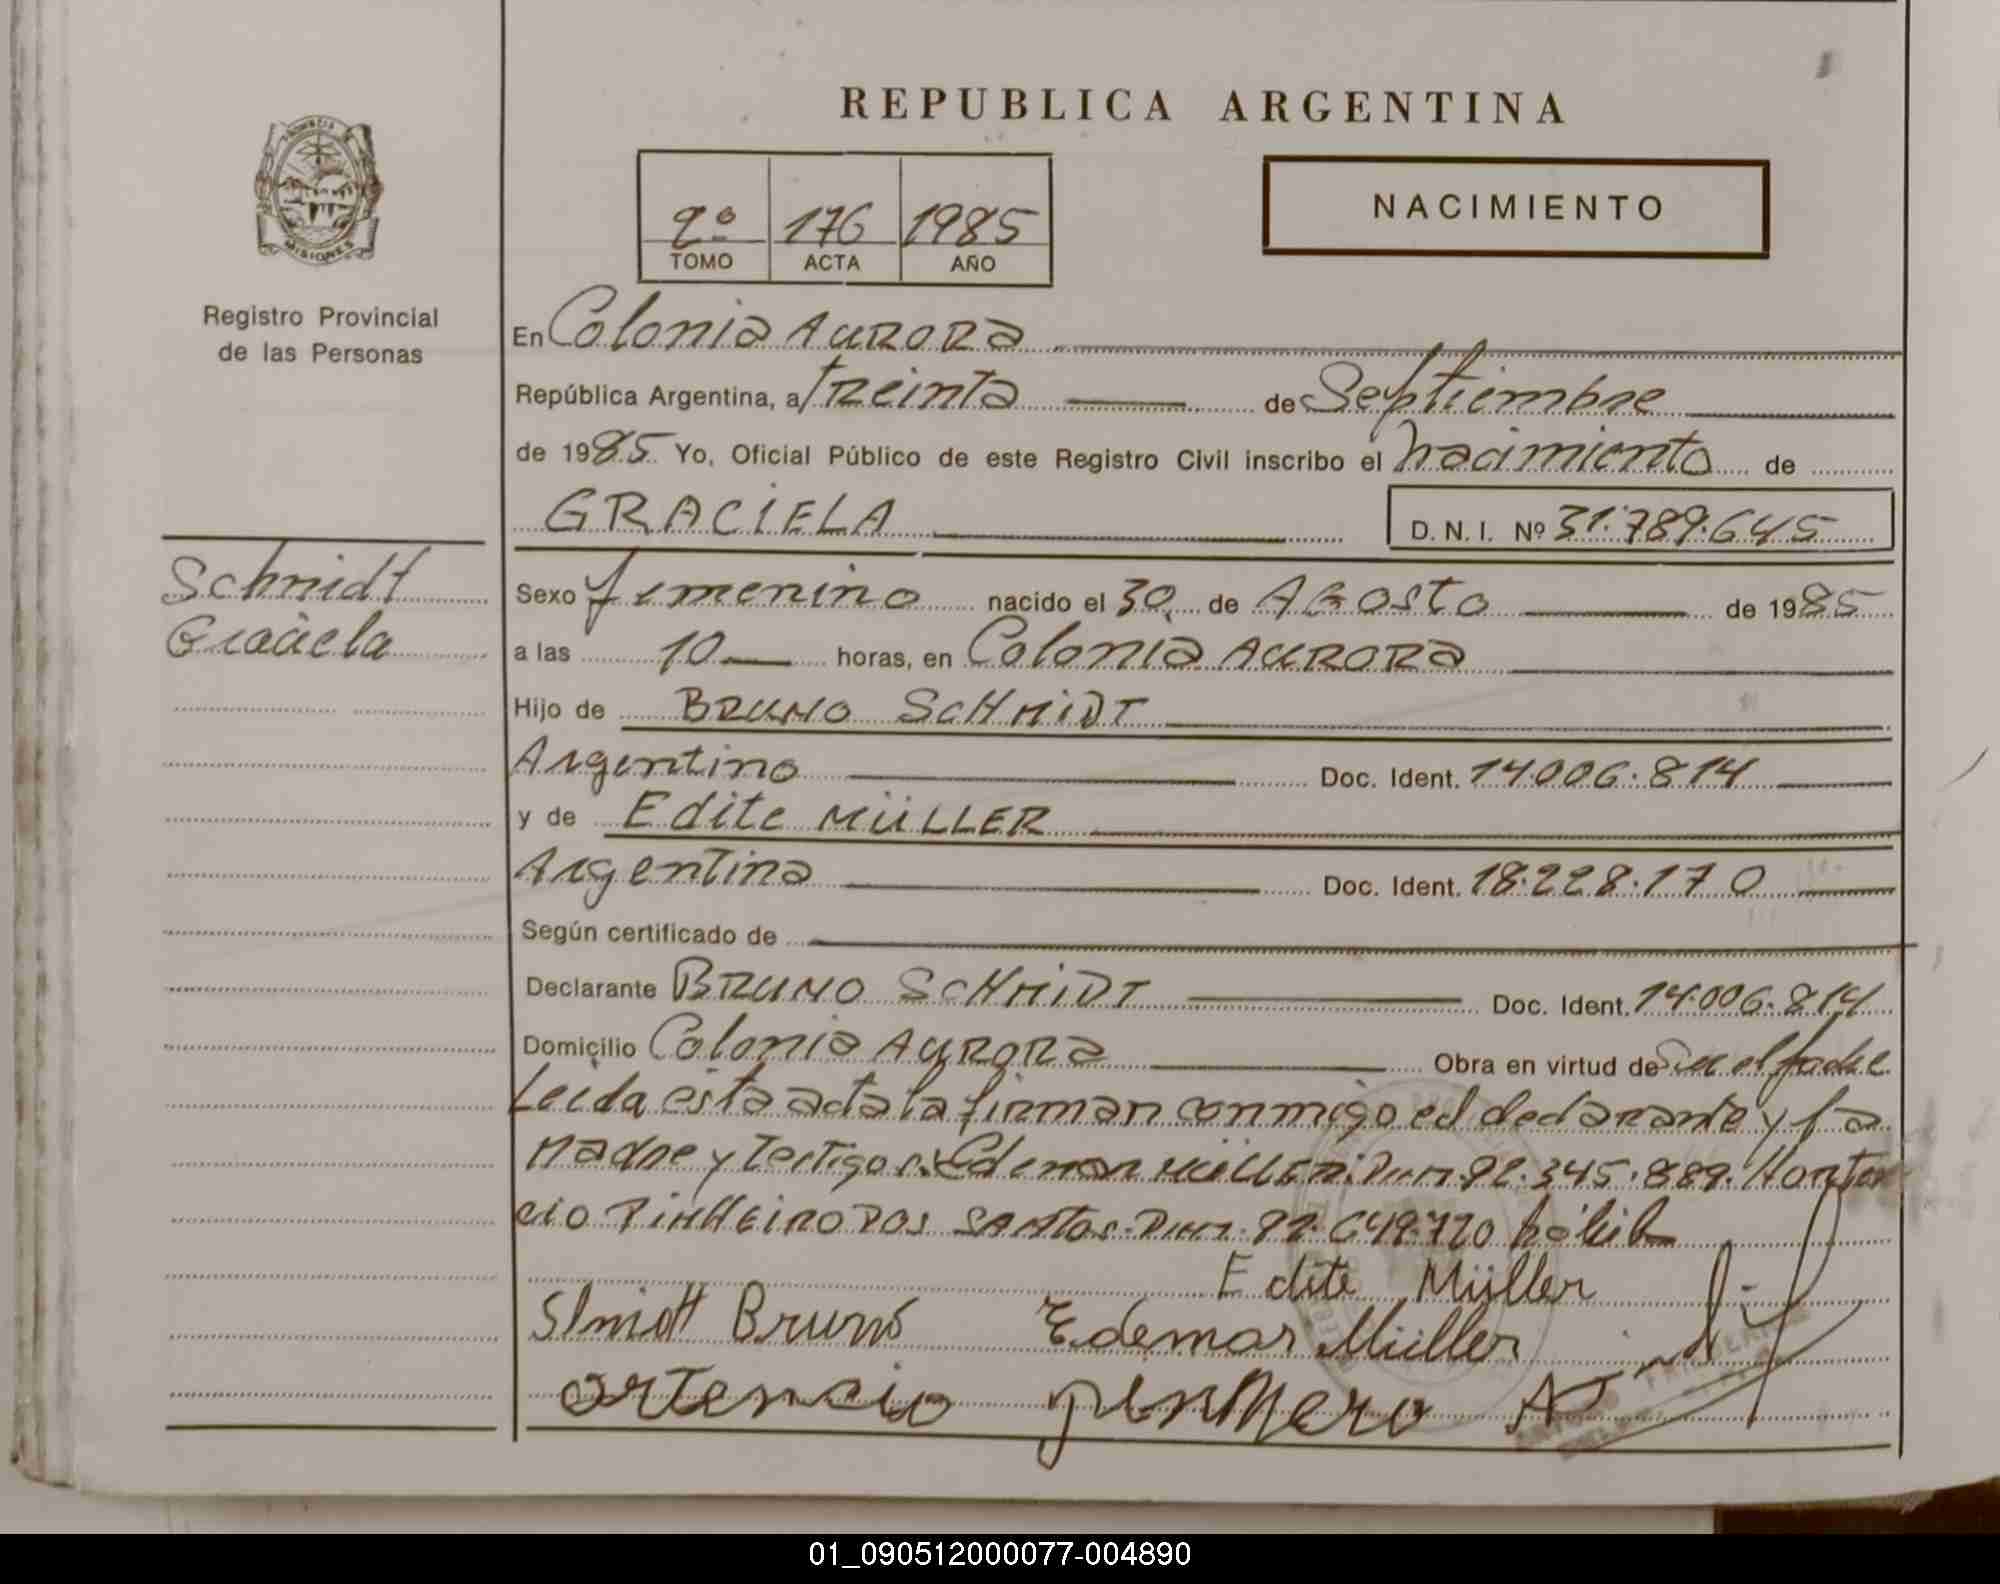 REPUBLICA ARGENTINA
PROVINCIA
MISIONES
Registro Provincial
de las Personas
2º 176 1985
TOMO ACTA AÑO
NACIMIENTO
En Colonia AURORA
República Argentina, a treinta de Septiembre
de 1985 Yo, Oficial Público de este Registro Civil inscribo el nacimiento de
GRACIELA D. N. I. Nº 31.789.645
Schmidt
Graciela
Sexo femenino nacido el 30 de AGosto de 1985
a las 10 horas, en Colonia AURORA
Hijo de BRUNO SCHMIDT
Argentino Doc. Ident. 14.006.814
y de Edite MÜLLER
Argentina Doc. Ident. 18.228.170
Según certificado de
Declarante BRUNO SCHMIDT Doc. Ident. 14.006.814
Domicilio Colonia AURORA Obra en virtud de Ser el padre
Leida esta acta la firman conmigo el declarante y la
Madre y Testigos: Edemar MÜLLER: DNI. 92.345.889. Horten
cio PINHEIRO DOS SANTOS. DNI. 92.649.720
Edite Müller
Slmidt Bruno Edemar Müller
ortencio
01_090512000077-004890